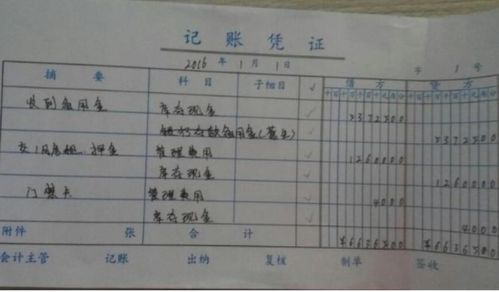 记账凭证
2016年1月1日 字1号
摘要 科目 子细目 √ 借方 贷方
千百十万千百十元角分 千百十万千百十元角分
收到备用金 库存现金 √ 5372500
备用金 5372500
房租、押金 管理费用 √ 1260000
库存现金 √ 1260000
门禁卡 管理费用 √ 4000
库存现金 √ 4000
附件 张 合计 ¥6636500 ¥6636500
会计主管 记账 出纳 复核 制单 签收